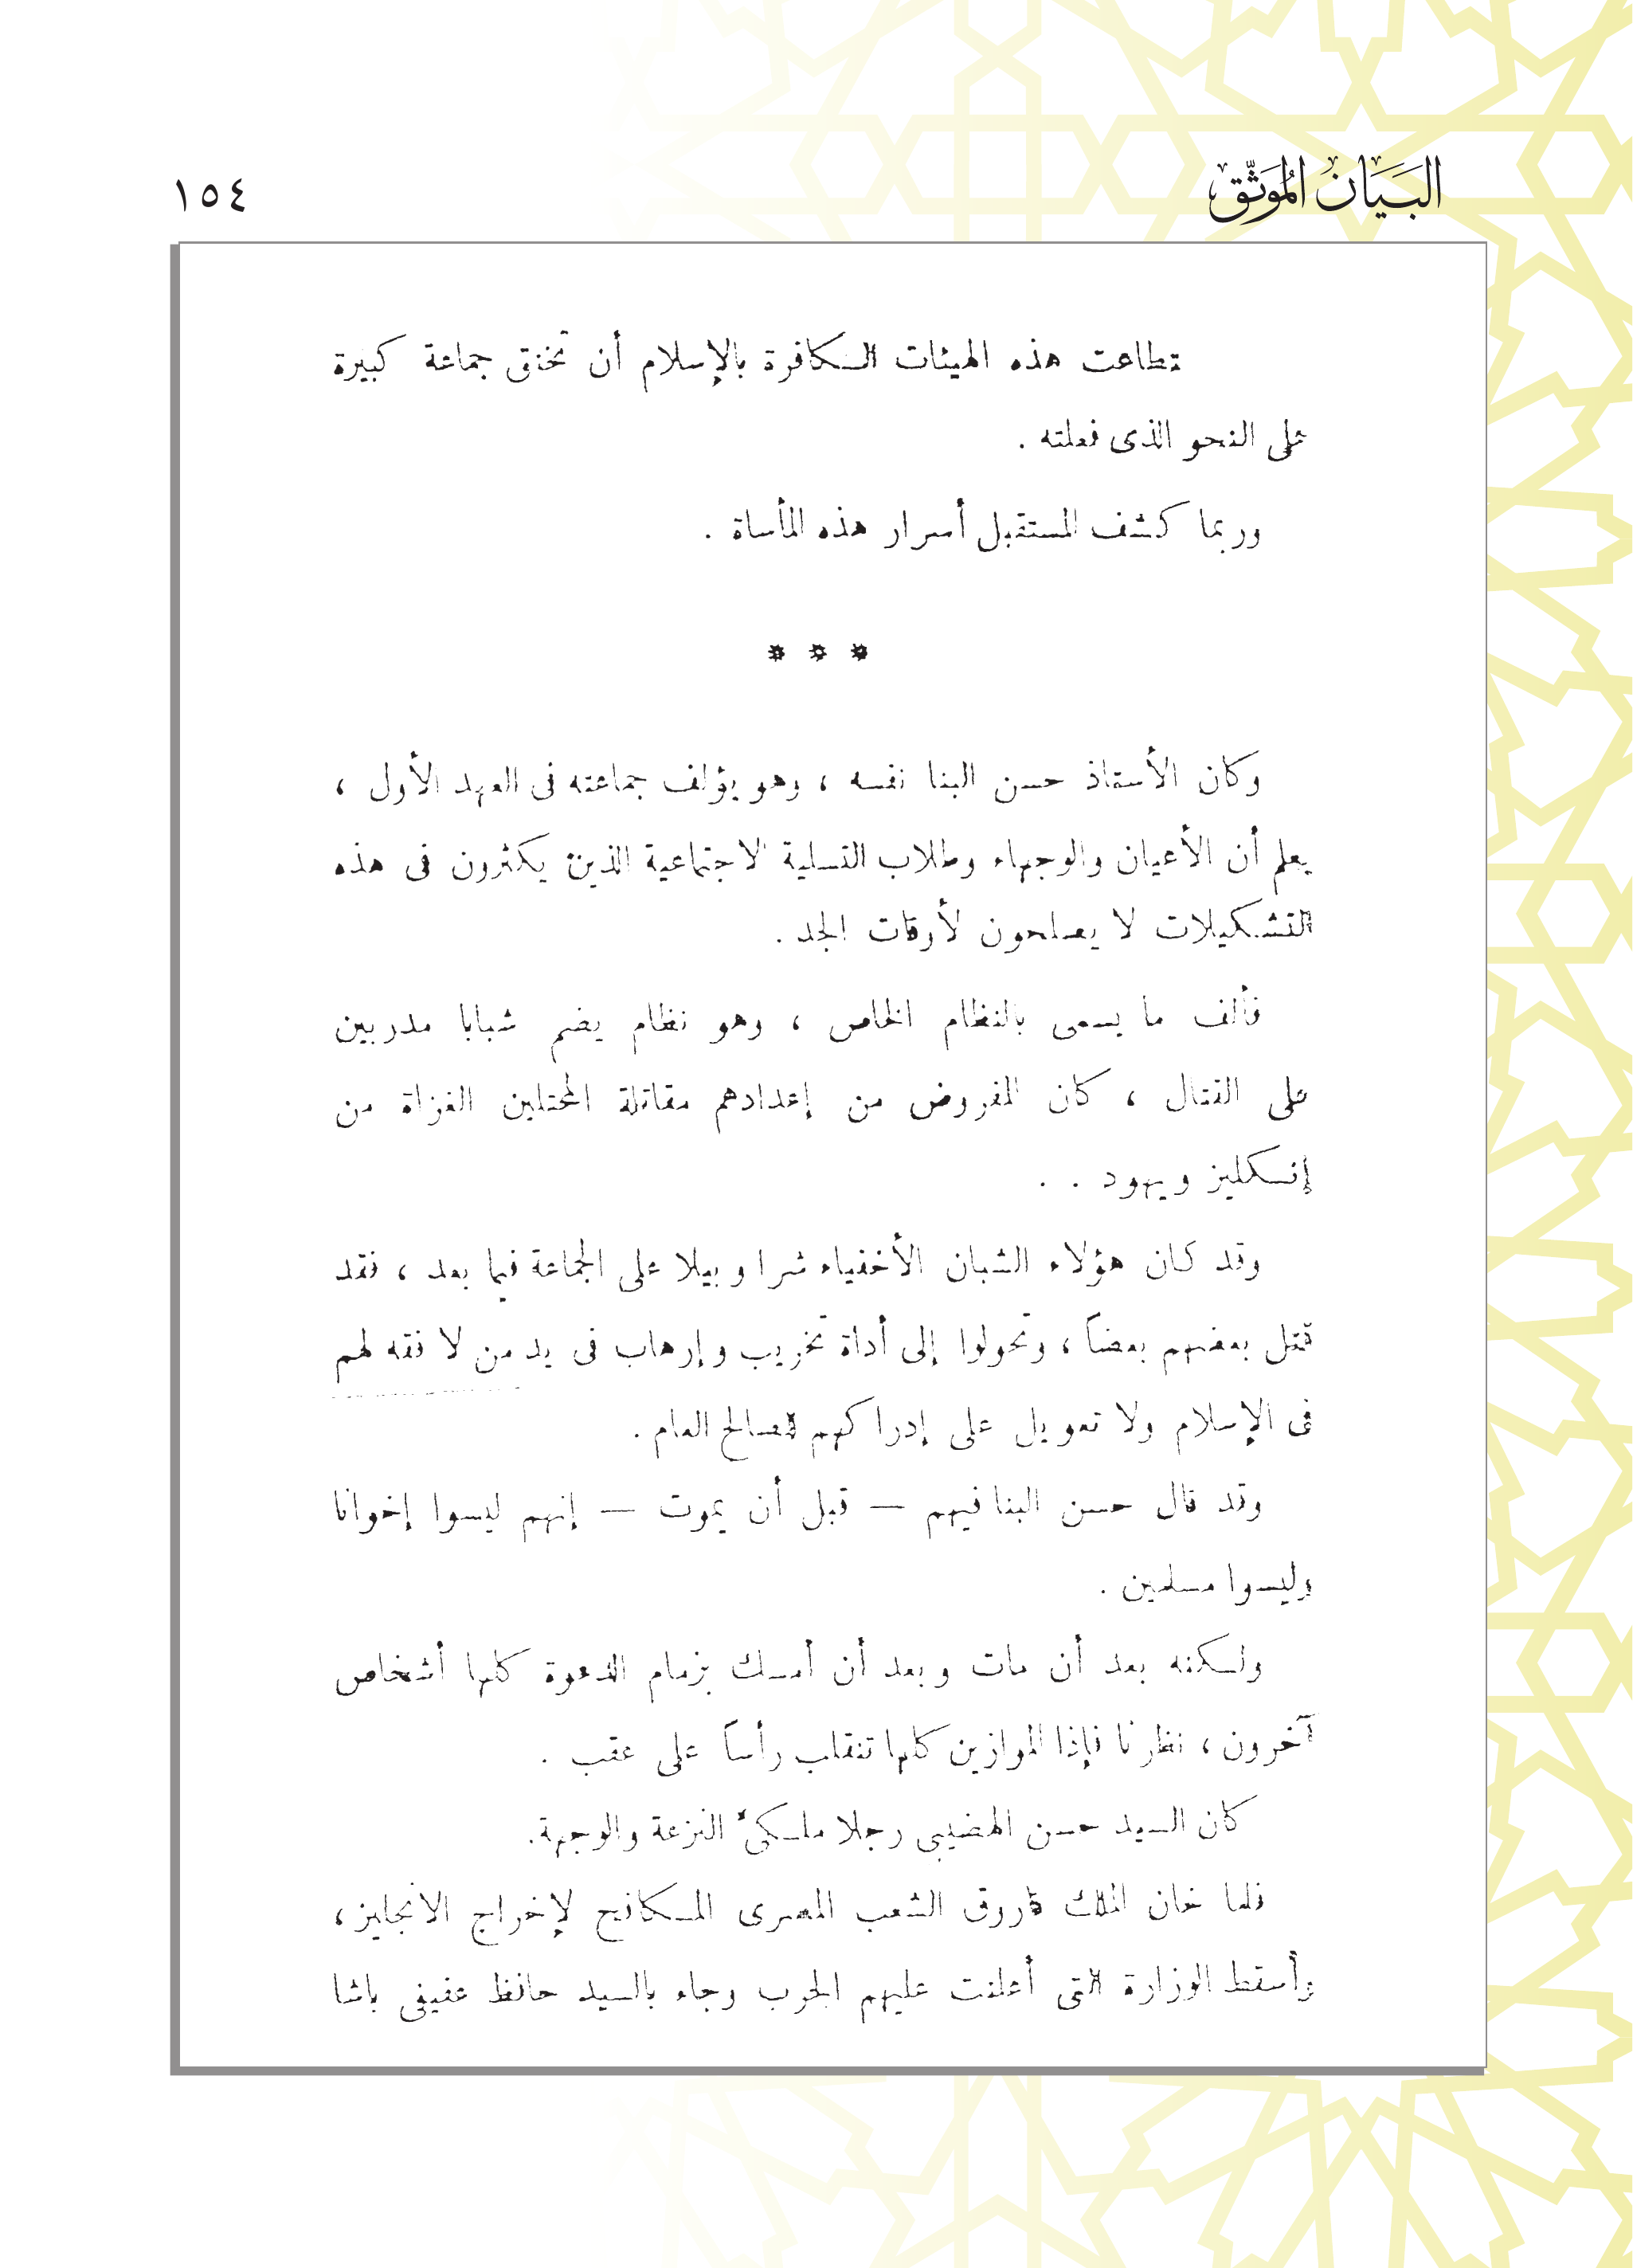 البَيَان المُوَثَّق
١٥٤
تطاعت هذه الهيئات الكافرة بالإسلام أن تخنق جماعة كبيرة
على النحو الذى فعلته .
وربما كشف المستقبل أسرار هذه المأساة .
* * *
وكان الأستاذ حسن البنا نفسه ، وهو يؤلف جماعته فى العهد الأول ،
يعلم أن الأعيان والوجهاء وطلاب التسلية الاجتماعية الذين يكثرون فى هذه
التشكيلات لا يصلحون لأوقات الجد .
فألف ما يسمى بالنظام الخاص ، وهو نظام يضم شبابا مدربين
على القتال ، كان المفروض من إعدادهم مقاتلة المحتلين الغزاة من
إنكليز ويهود . .
وقد كان هؤلاء الشبان الأخفياء شرا وبيلا على الجماعة فيما بعد ، فقد
قتل بعضهم بعضاً ، وتحولوا إلى أداة تخريب وإرهاب فى يد من لا فقه لهم
فى الإسلام ولا تعويل على إدراكهم للصالح العام .
وقد قال حسن البنا فيهم — قبل أن يموت — إنهم ليسوا إخوانا
وليسوا مسلمين .
ولكنه بعد أن مات وبعد أن أمسك بزمام الدعوة كلها أشخاص
آخرون ، نظرنا فإذا الموازين كلها تنقلب رأساً على عقب .
كان السيد حسن الهضيبى رجلا ملكىَّ النزعة والوجهة.
فلما خان الملك فاروق الشعب المصرى المكافح لإخراج الانجليز ،
وأسقط الوزارة التى أعلنت عليهم الحرب وجاء بالسيد حافظ عفيفى باشا